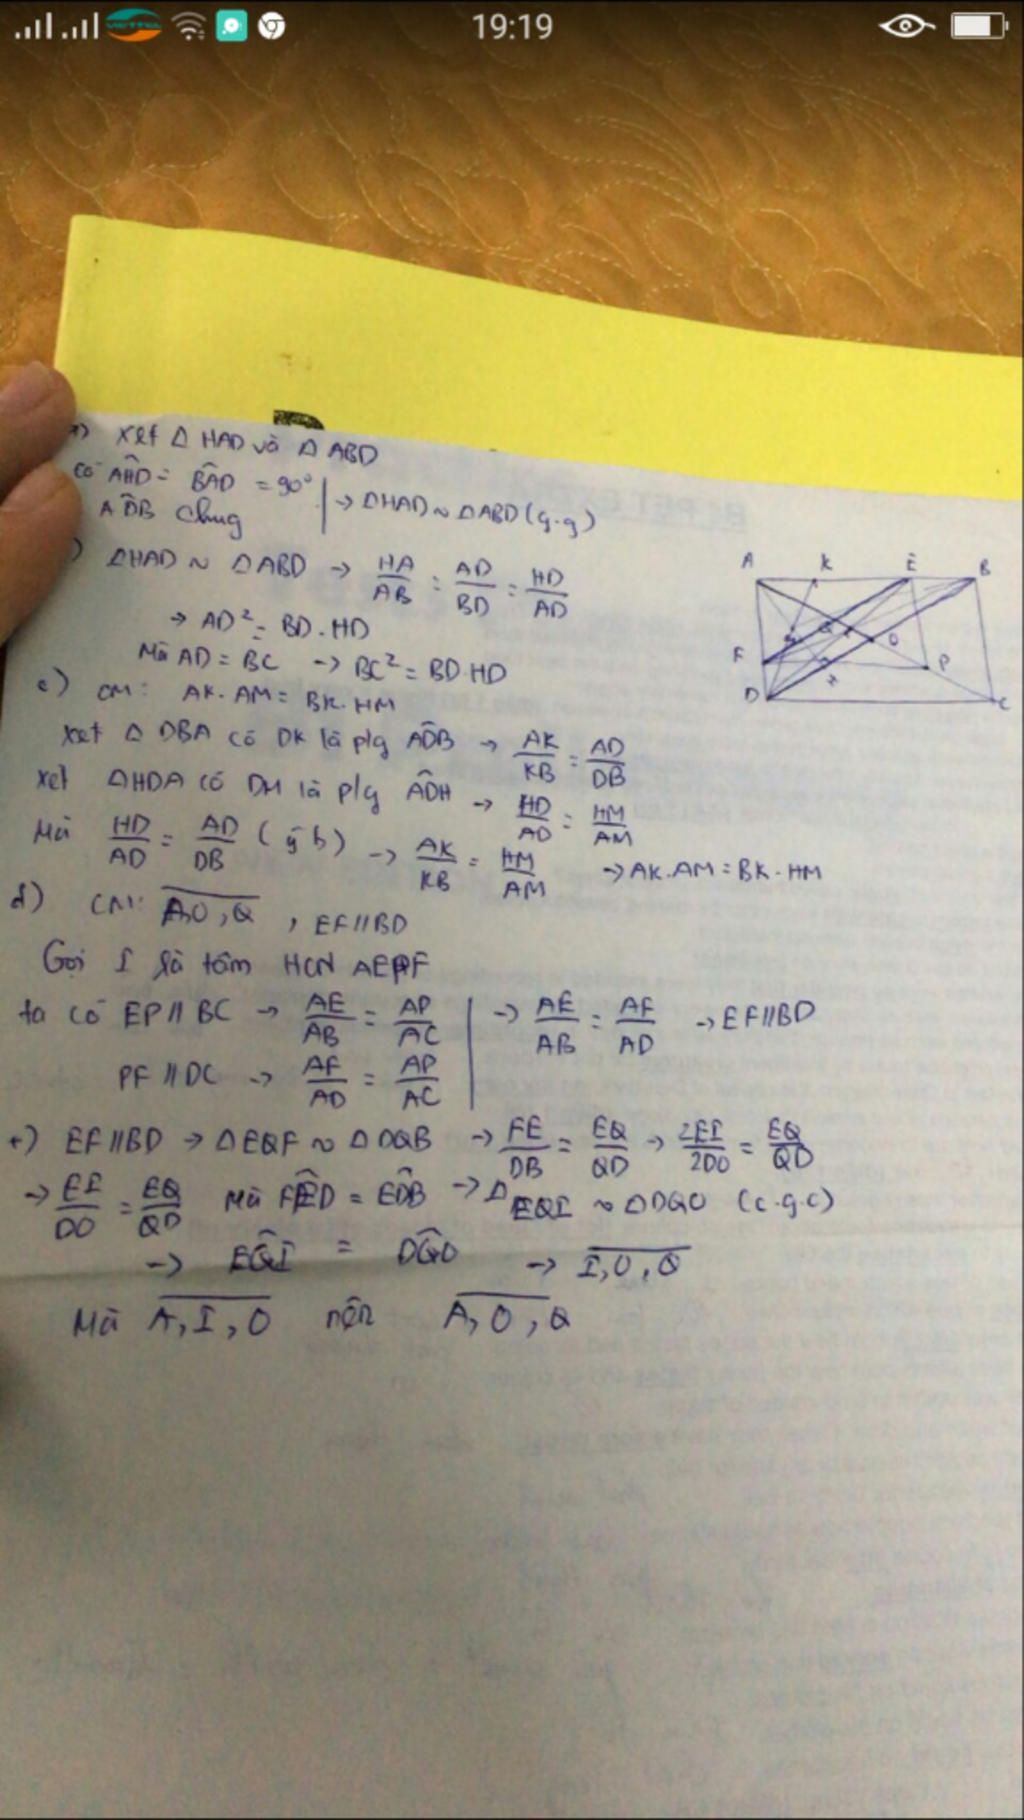 19:19
VIETTEL
Xét Δ HAD và Δ ABD
có AĤD = BÂD = 90° | → ΔHAD ~ ΔABD (g.g)
AD̂B chung
) ΔHAD ~ ΔABD → HA/AB = AD/BD = HD/AD
→ AD² = BD.HD
Mà AD = BC → BC² = BD.HD
c) CM: AK.AM = BK.HM
Xét Δ DBA có DK là p/g AD̂B → AK/KB = AD/DB
Xét ΔHDA có DM là p/g AD̂H → HD/AD = HM/AM
Mà HD/AD = AD/DB (ý b) → AK/KB = HM/AM → AK.AM = BK.HM
d) CM: A,O,Q , EF//BD
Gọi I là tâm HCN AEPF
ta có EP//BC → AE/AB = AP/AC | → AE/AB = AF/AD → EF//BD
PF//DC → AF/AD = AP/AC
+) EF//BD → ΔEQF ~ ΔDQB → FE/DB = EQ/QD → 2EI/2DO = EQ/QD
→ EI/DO = EQ/QD Mà FÊD = ED̂B → Δ EQI ~ ΔDQO (c.g.c)
→ EQ̂I = DQ̂O → I,O,Q
Mà A,I,O nên A,O,Q
A K E B
F O P
H
D C